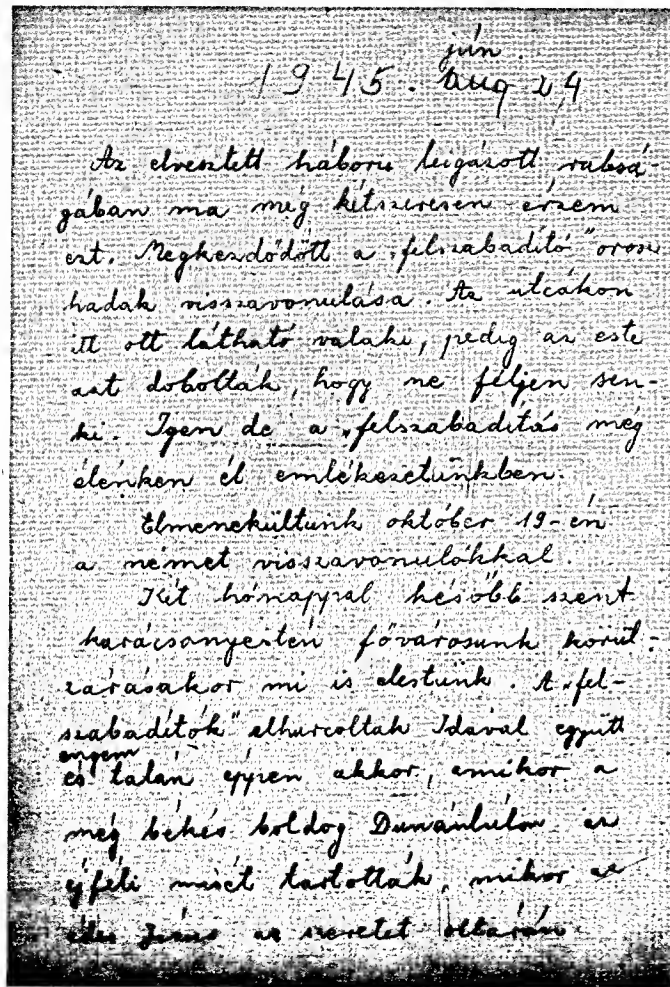 jún.
1945. aug 24
Az elvesztett háboru leigázott rabsá-
gában ma még kétszeresen érzem
ezt. Megkezdődött a „felszabadító" orosz
hadak visszavonulása. Az utcákon
itt ott látható valaki, pedig az este
azt dobolták, hogy ne féljen sen-
ki. Igen de a „felszabadítás még
élénken él emlékezetünkben.
Elmenekültünk október 19-én
a német visszavonulókkal.
Két hónappal később szent
karácsonyestén fővárosunk körül-
zárásakor mi is elestünk. A „fel-
szabadítók" elhurcoltak Idával együtt
engem
és talán éppen akkor, amikor a
még békés boldog Dunántúlon az
éjféli misét tartották, mikor az
édes Jézus az szeretet oltárán